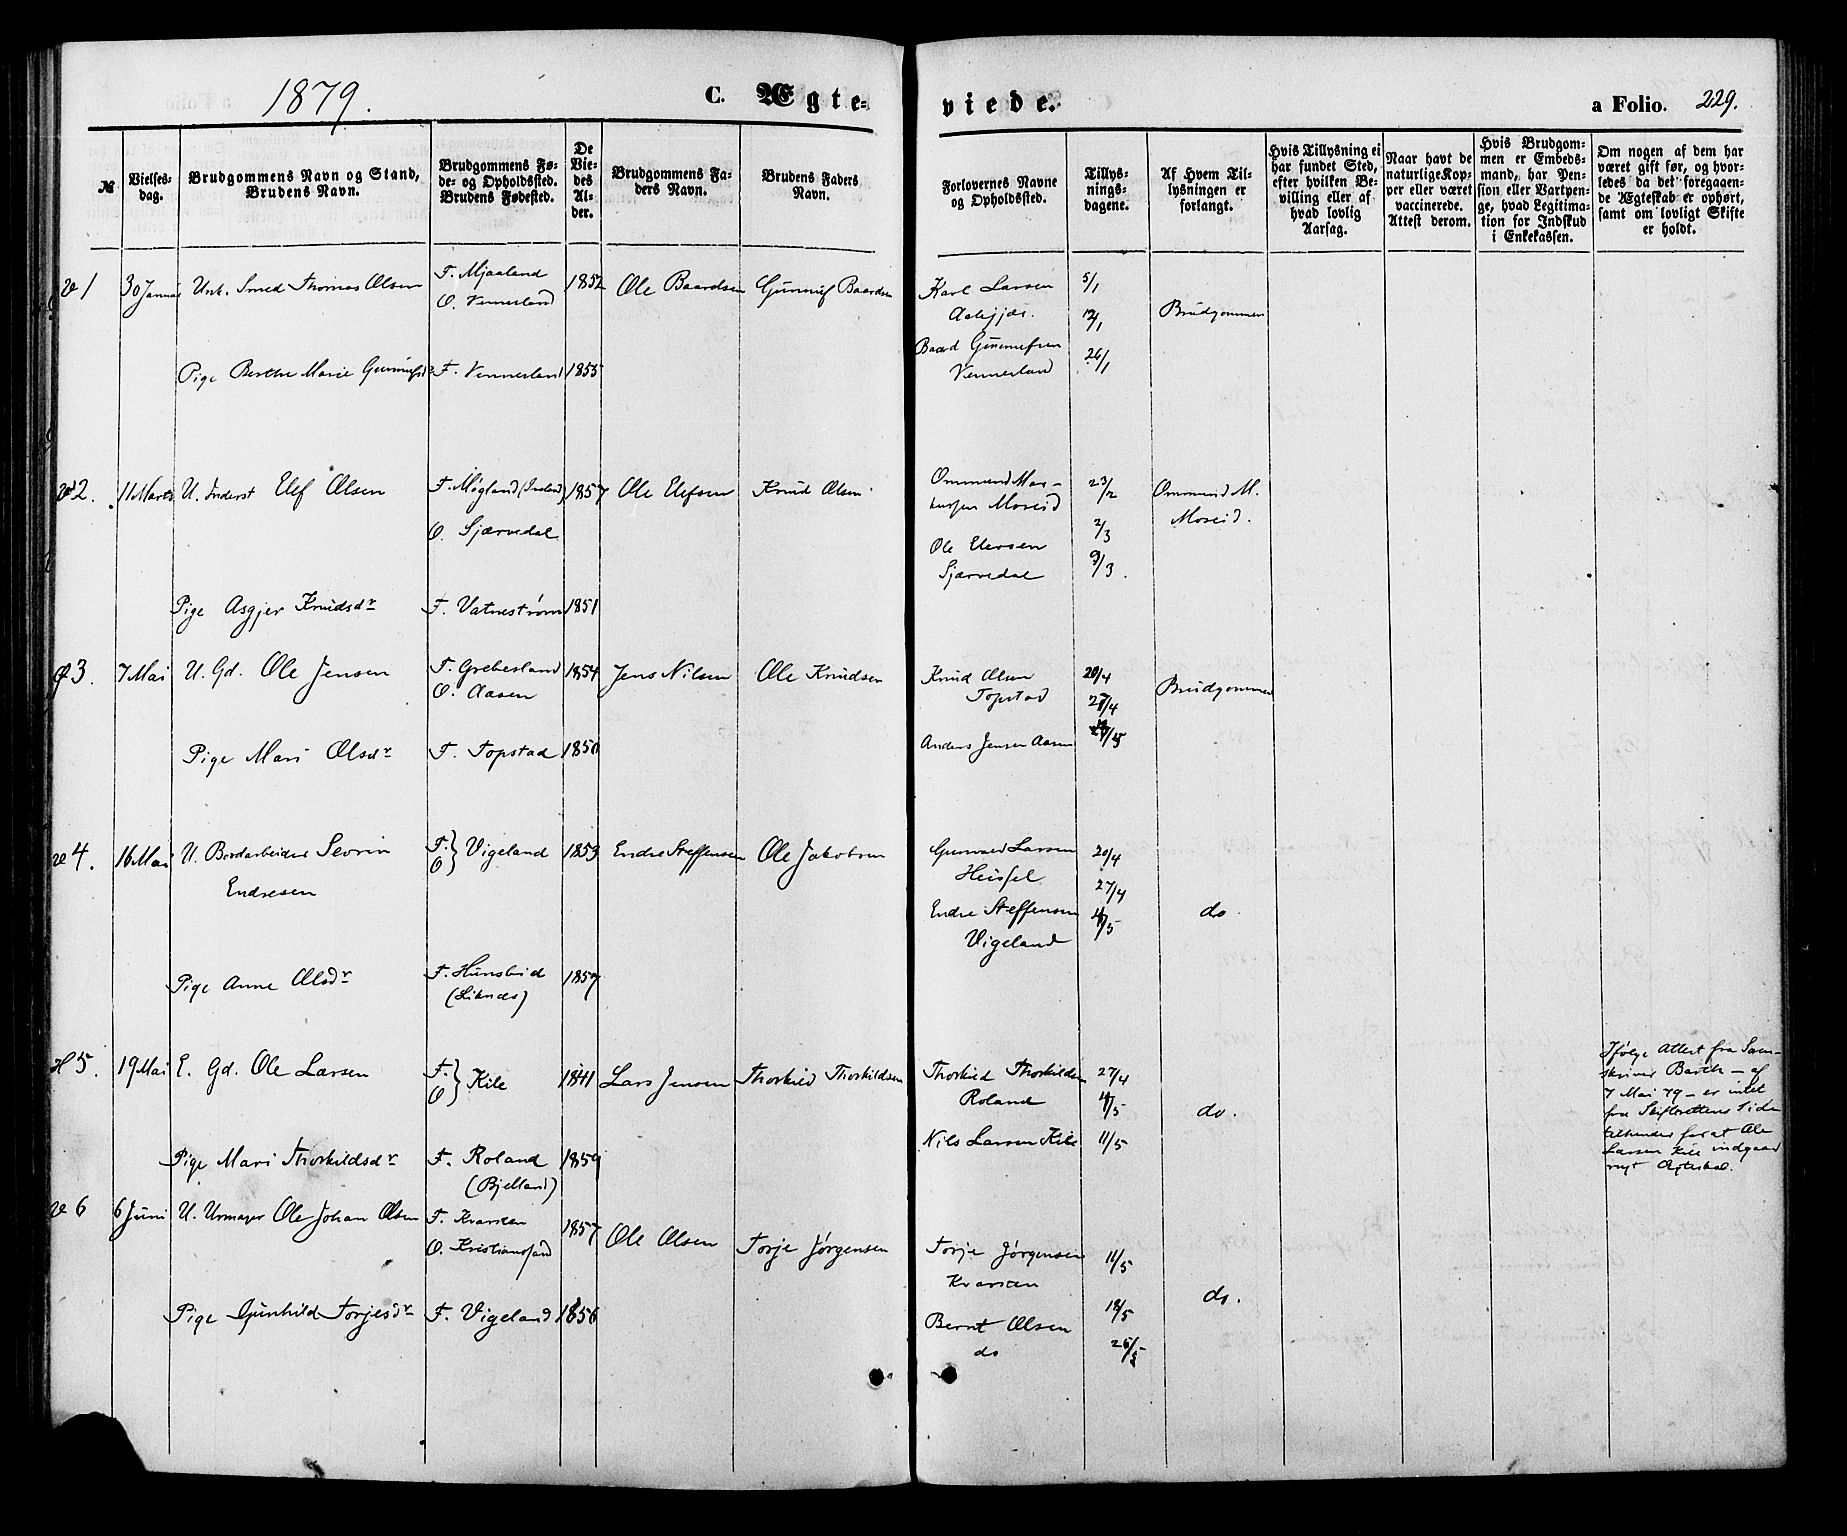 1879.
C. Ægte-
viede.
a Folio. 229.
№
Vielses-
dag.
Brudgommens Navn og Stand,
Brudens Navn.
Brudgommens Fø-
de- og Opholdssted.
Brudens Fødested.
De
Vie-
des
Al-
der.
Brudgommens Fa-
ders Navn.
Brudens Faders
Navn.
Forlovernes Navne
og Opholdssted.
Tillys-
nings-
dagene.
Af Hvem Til-
lysningen er
forlangt.
Hvis Tillysning ei
har fundet Sted,
efter hvilken Be-
villing eller af
hvad lovlig
Aarsag.
Naar havt de
naturlige Kop-
per eller været
vaccinerede.
Attest derom.
Hvis Brudgom-
men er Embeds-
mand, har Pen-
sion eller Vartpen-
ge, hvad Legitima-
tion for Indskud
i Enkekassen.
Om nogen af dem har
været gift før, og hvor-
ledes da det foregaaen-
de Ægteskab er ophørt,
samt om lovligt Skifte
er holdt.
v 1 30 Januar Unk. Smed Thomas Olsen F. Mjaaland 1852 Ole Baardsen Gunnuf Baardsen Karl Larsen 5/1
O. Vennesland Aakjær. 12/1 Brudgommen
Baard Gunnufsen 26/1
Pige Berthe Marie Gunnufsd F. Vennesland 1855 Vennesland
v 2. 11 Marts U. Inderst Elef Olsen F. Møgland 1857 Ole Elefsen Knud Olsen Ommund Mar- 23/2 Ommund M.
O. Sjærvedal kussen Moseid 2/3 Moseid.
Ole Elevsen 9/3.
Sjærvedal
Pige Asgjer Knudsdr F. Vatnestrøm 1851
Ø 3. 7 Mai U. Gd. Ole Jensen F. Grebesland 1854 Jens Nilsen Ole Knudsen Knud Olsen 20/4
O. Aasen Topstad 27/4 Brudgommen
Anders Jensen Aasen
Pige Mari Olsdr F. Topstad 1850
v 4. 16 Mai U. Bordarbeider Sevrin F. O } Vigeland 1853 Endre Steffensen Ole Jakobsen Gunvald Larsen 20/4
Endresen 27/4
Endre Steffensen 4/5 do.
Vigeland
Pige Anne Olsdr F. Hunsbed 1857
H 5. 19 Mai E. Gd. Ole Larsen F. O } Kile 1841 Lars Jensen Thorkild Thorkildsen Thorkild Thorkildsen 27/4
Roland 4/5 do.
Nils Larsen Kile 11/5
Pige Mari Thorkildsdr F. Roland 1859
(Bjelland)
Ifølge Attest fra Soren-
skriver Barth – af
7 Mai 79 – er intet
fra Skifterettens Side
tilhinder for at Ole
Larsen Kile indgaar
nyt Ægteskab.
v 6 6 Juni U. Urmager Ole Johan Olsen F. Kvarsten 1857 Ole Olsen Torje Jørgensen Torje Jørgensen 11/5
O. Kristianssand Kvarsten do.
Pige Gunhild Torjesdr F. Vigeland 1856 18/5
Bernt Olsen
do 25/5